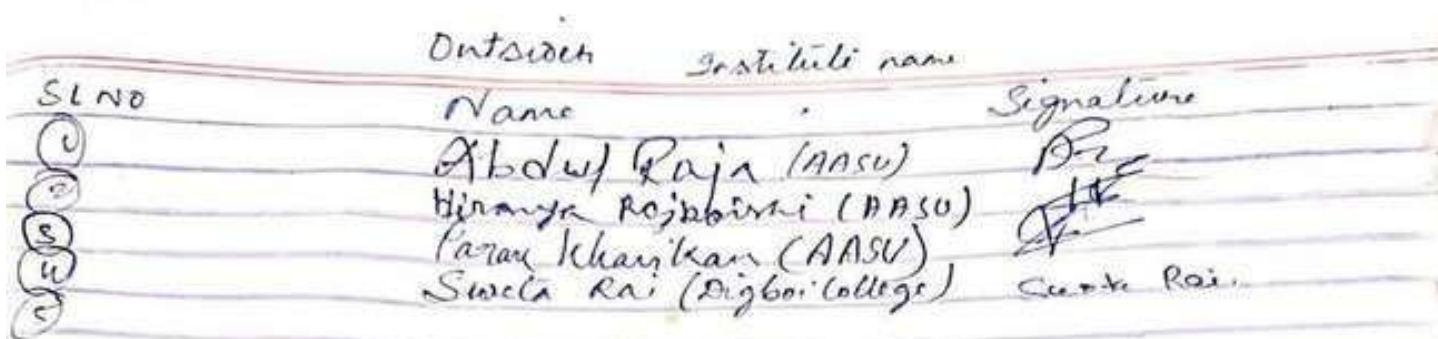 Outsiders Institute name
SL NO Name Signature
1 Abdul Raja (AASU)
2 Hiranya Rajbonshi (AASU)
3 (AASU)
4 Sweta Rai (Digboi College) Sweta Rai.
5